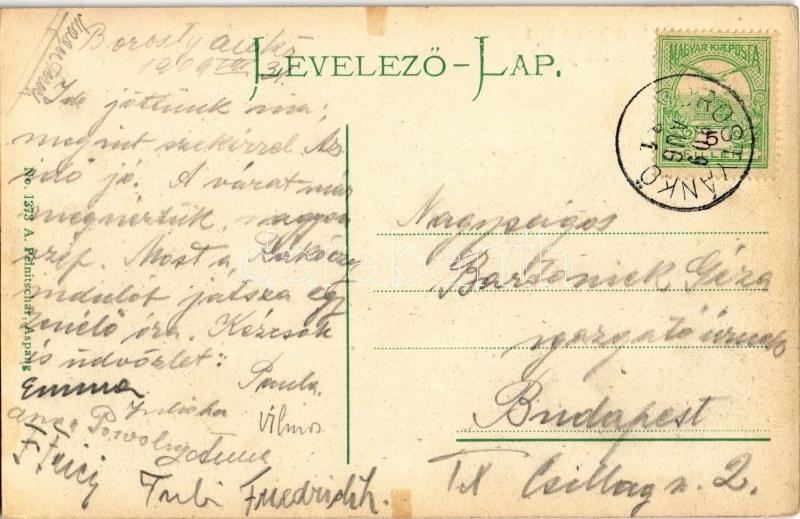 Borostyánkő
1909 VIII 31.
LEVELEZŐ-LAP.
MAGYAR KIR. POSTA
Ide jöttünk ma,
megint szekérrel. Az
idő jó. A várat már
megnéztük, nagyon
szép. Most a Rákóczy
indulót játsza egy
zenélő óra. Kézcsók
és üdvözlet:
Emma Paula.
Juliska Vilmos
Anna
Fricij
Juli Friedrich.
No. 1373 A. Pelnitschar, Aspang
Nagyságos
Bartoniek Géza
igazgató úrnak
Budapest
IX Csillag u. 2.